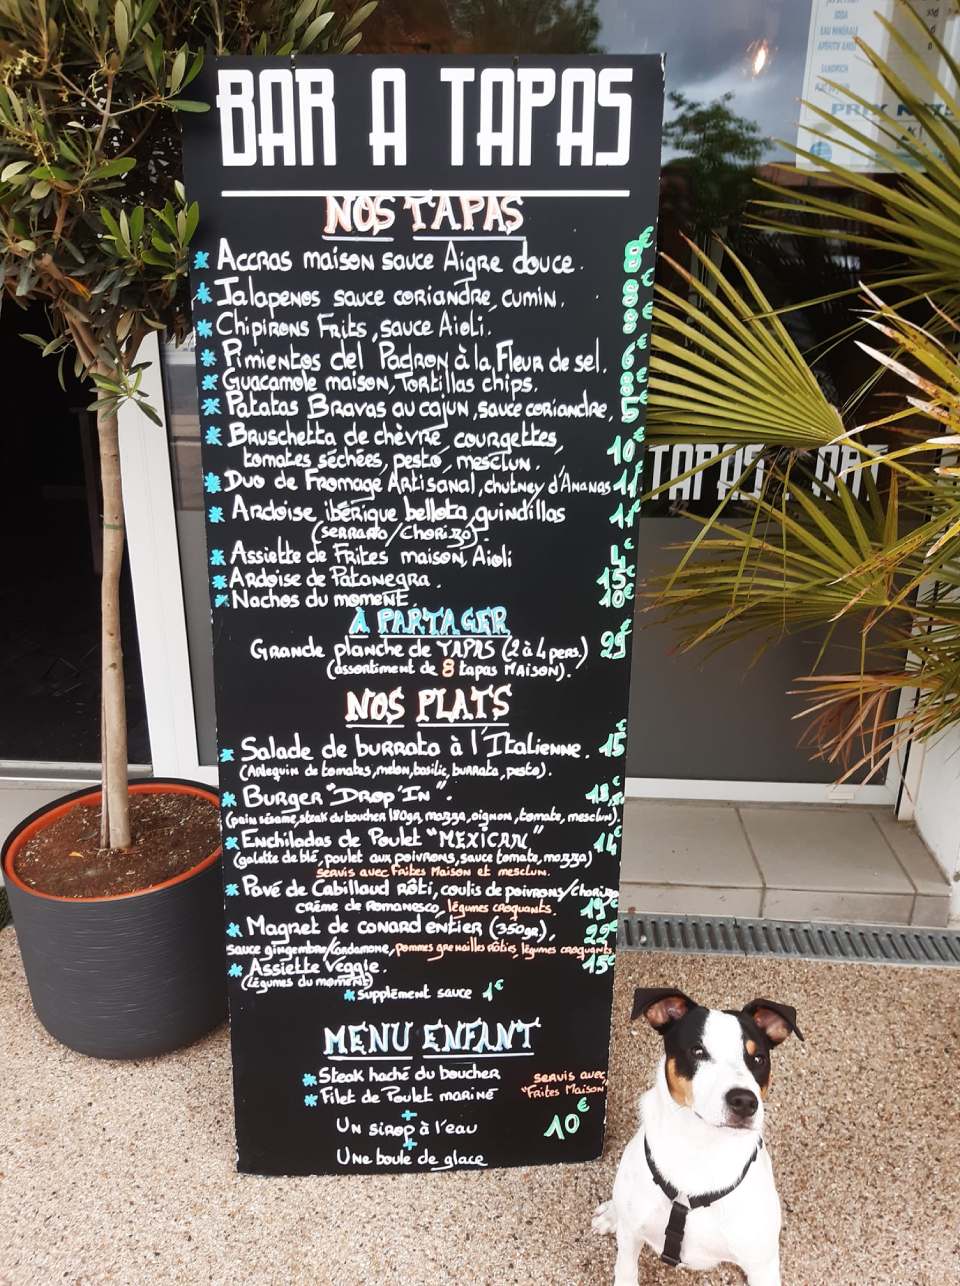 BAR A TAPAS
NOS TAPAS
* Accras maison sauce Aigre douce. 8€
* Jalapenos sauce coriandre, cumin. 8€
* Chipirons Frits, sauce Aioli. 8€
* Pimientos del Padron à la Fleur de sel. 6€
* Guacamole maison, Tortillas chips. 8€
* Patatas Bravas au cajun, sauce coriandre, 5€
* Bruschetta de chèvre, courgettes, 10€
tomates séchées, pesto, mesclun.
* Duo de Fromage Artisanal, chutney d'Ananas 11€
* Ardoise ibérique bellota, guindillas 11€
(serrano/Chorizo).
* Assiette de Frites maison, Aioli 4€
* Ardoise de Patanegra. 15€
* Nachos du moment. 10€
À PARTAGER
Grande planche de TAPAS (2 à 4 pers.) 29€
(assortiment de 8 tapas MAISON).
NOS PLATS
* Salade de burrata à l'Italienne. 15€
(Arlequin de tomates, melon, basilic, burrata, pesto).
* Burger "Drop'In".
(pain sésame, steak du boucher 180gr, mozza, oignon, tomate, mesclun).
* Enchiladas de Poulet "MEXICAN" 14€
(galette de blé, poulet aux poivrons, sauce tomate, mozza)
servis avec Frites Maison et mesclun.
* Pavé de Cabillaud Rôti, coulis de poivrons/chorizo
crème de Romanesco, légumes croquants. 19€
* Magret de canard entier (350gr), 22€
sauce gingembre/cardamome, pommes grenailles Rôties, légumes croquants.
* Assiette Veggie. 15€
(légumes du moment)
* supplément sauce 1€
MENU ENFANT
* Steak haché du boucher servis avec
* Filet de Poulet mariné "Frites Maison"
+
Un sirop à l'eau 10€
+
Une boule de glace
SODA
EAU MINERALE
SANDWICH
PRIX NETS
TAPAS